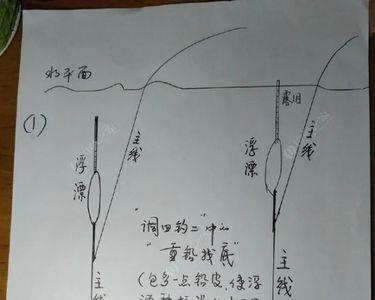 水平面
①
主线
浮漂
主线
露1目
浮漂
主线
主线
"调四钓二"中的
"重铅找底"
(包多一点铅皮,使浮